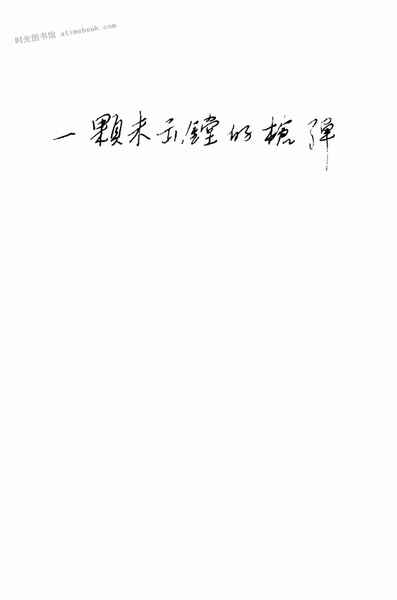 时光图书馆 atimebook.com
一颗未出镗的枪弹